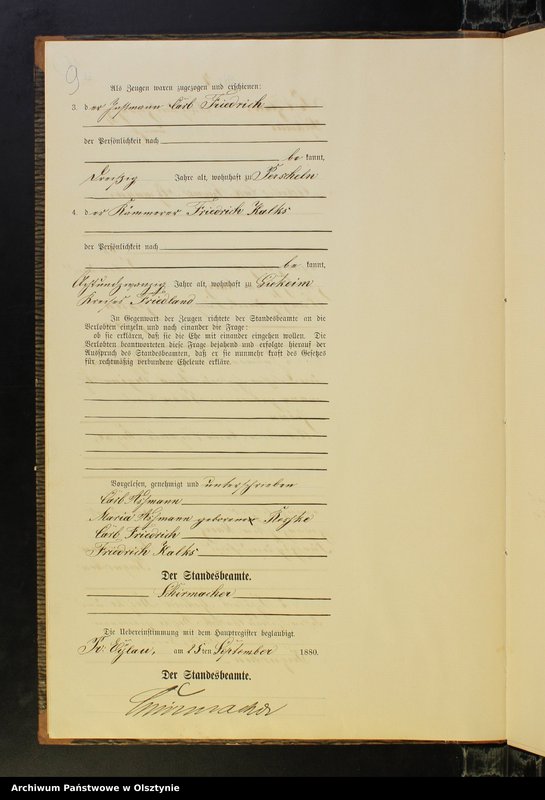 9
Als Zeugen waren zugezogen und erschienen:
3. der Instmann Carl Friedrich
der Persönlichkeit nach
be kannt,
dreißig Jahre alt, wohnhaft zu Perscheln
4. der Kämmerer Friedrich Kalks
der Persönlichkeit nach
be kannt,
Achtundzwanzig Jahre alt, wohnhaft zu
Kreises Friedland
In Gegenwart der Zeugen richtete der Standesbeamte an die
Verlobten einzeln und nach einander die Frage:
ob sie erklären, daß sie die Ehe mit einander eingehen wollen. Die
Verlobten beantworteten diese Frage bejahend und erfolgte hierauf der
Ausspruch des Standesbeamten, daß er sie nunmehr kraft des Gesetzes
für rechtmäßig verbundene Eheleute erkläre.
Vorgelesen, genehmigt und unterschrieben
Carl
Maria geborene
Carl Friedrich
Friedrich Kalks
Der Standesbeamte.
Schirmacher
Die Uebereinstimmung mit dem Hauptregister beglaubigt.
Pr: Eylau, am 25 ten September 1880.
Der Standesbeamte.
Schirmacher
Archiwum Państwowe w Olsztynie